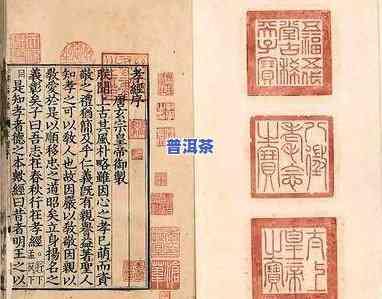 五福五代堂古稀天子寶
八徵耄念之寶
太上皇帝之寶
孝經序
唐玄宗皇帝御製
朕聞上古其風朴略雖因心之孝已萌而資
敬之禮猶簡及乎仁義既有親譽益著聖人
知孝之可以教人也故因嚴以教敬因親以
教愛於是以順移忠之道昭矣立身揚名之
義彰矣子曰吾志在春秋行在孝經
是知孝者德之本歟經曰昔者明王之以
普洱茶